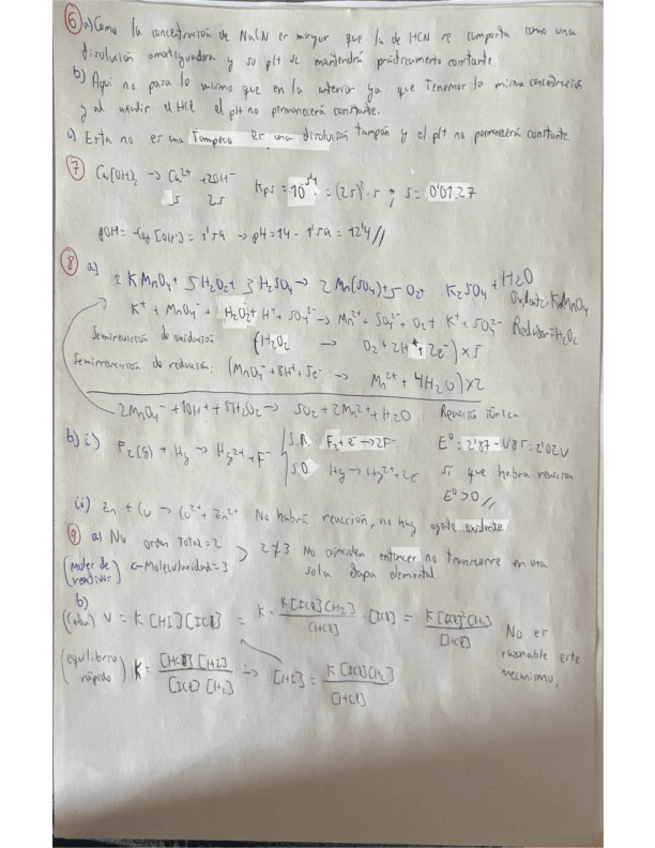 ⑥ a) Como la concentración de NaCN er mayor que la de HCN se comporta como una
disolución amortiguadora y su pH se mantendrá prácticamente constante.
b) Aquí no pasa lo mismo que en la anterior ya que Tenemos la misma concentración
y al añadir el HCl el pH no permanecerá constante.
c) Esta no er una Tampoco er una disolución tampón y el pH no permanecerá constante
⑦ Ca(OH)₂ → Ca²⁺ + 2OH⁻
s 2s
= (2s)²·s ; s = 0'0127
pOH = -log [OH⁻] = 1'59 → pH = 14 - 1'59 = 12'4 //
⑧ a) 2 KMnO₄ + 5 H₂O₂ + 3 H₂SO₄ → 2 Mn(SO₄) + 5 O₂ + K₂SO₄ + H₂O
K⁺ + MnO₄⁻ + H₂O₂ + H⁺ + SO₄²⁻ → Mn²⁺ + SO₄²⁻ + O₂ + K⁺ + SO₄²⁻
Oxidante: KMnO₄
Reductor = H₂O₂
Semirreacción de oxidación (H₂O₂ → O₂ + 2H⁺ + 2e⁻) × 5
Semirreacción de reducción: (MnO₄⁻ + 8H⁺ + 5e⁻ → Mn²⁺ + 4H₂O) × 2
2MnO₄⁻ + 10H⁺ + 5H₂O₂ → 5O₂ + 2Mn²⁺ + H₂O Reacción iónica
b) i) F₂(g) + Hg → Hg²⁺ + F⁻ S.R. F₂ + e⁻ → 2F⁻ E⁰ = 2'87 - 0'85 = 2'02V
S.O. Hg → Hg²⁺ + 2e⁻ Si que habra reaccion
E⁰ > 0 //
ii) Zn + Cu → Cu²⁺ + Zn²⁺ No habrá reacción, no hay agente oxidante
⑨ a) No orden Total = 2 > 2 ≠ 3 No coinciden entonces no transcurre en una
(moles de reactivos) ← Molecularidad = 3 sola etapa elemental.
b)
(lenta) V = K [HI][ICl] = K · K[ICl][H₂] / [HCl] · [ICl] = K[ICl]²[H₂] / [HCl]
No es
razonable este
mecanismo.
(equilibrio rápido) K = [HCl][HI] / [ICl][H₂] → [HI] = K[ICl][H₂] / [HCl]